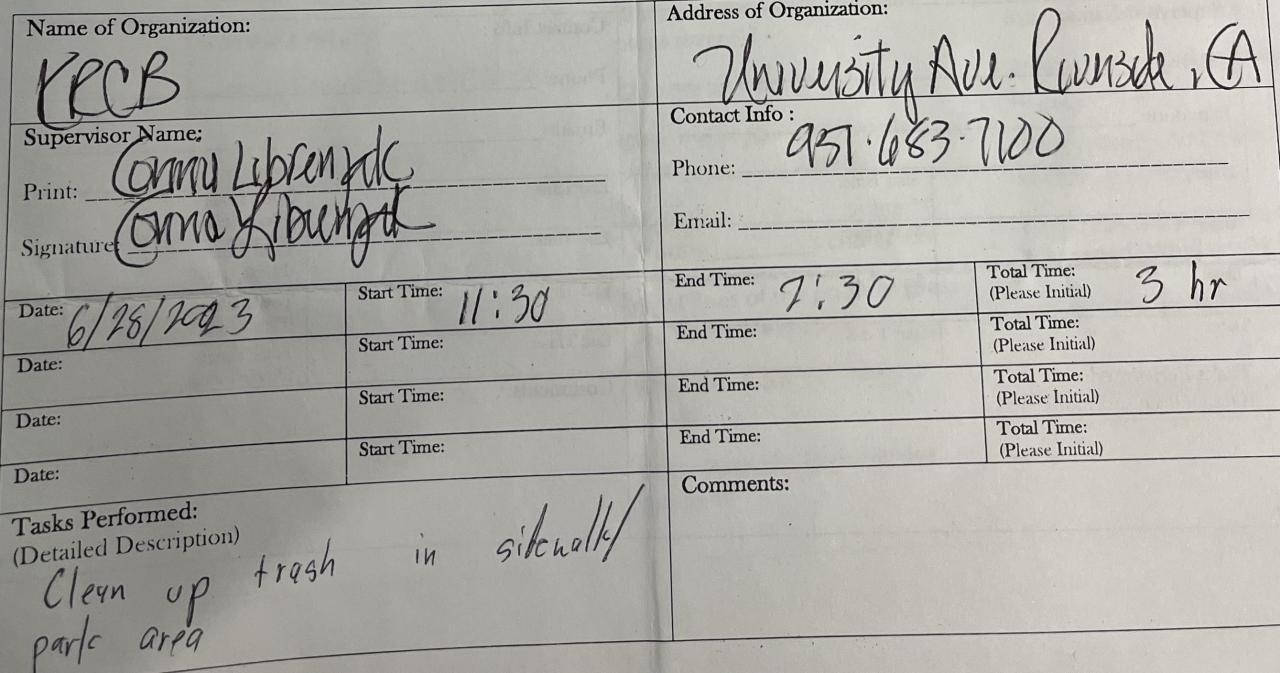 Name of Organization:
Address of Organization:
University Ave. Riverside, CA
Supervisor Name:
Contact Info :
Print:
Phone: 951.683.7100
Signature:
Email:
Date: 6/28/2023 Start Time: 11:30 End Time: 2:30 Total Time: 3 hr
(Please Initial)
Date: Start Time: End Time: Total Time:
(Please Initial)
Date: Start Time: End Time: Total Time:
(Please Initial)
Date: Start Time: End Time: Total Time:
(Please Initial)
Tasks Performed:
(Detailed Description)
Clean up trash in sidewalk/
park area
Comments: